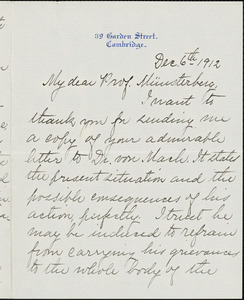 89 Garden Street.
Cambridge.
Dec 6th 1912
My dear Prof. Münsterberg,
I want to
thank you for sending me
a copy of your admirable
letter to Dr. von Mach. It states
the present situation and the
possible consequences of his
action, perfectly. I trust he
may be induced to refrain
from carrying his grievances
to the whole body of the